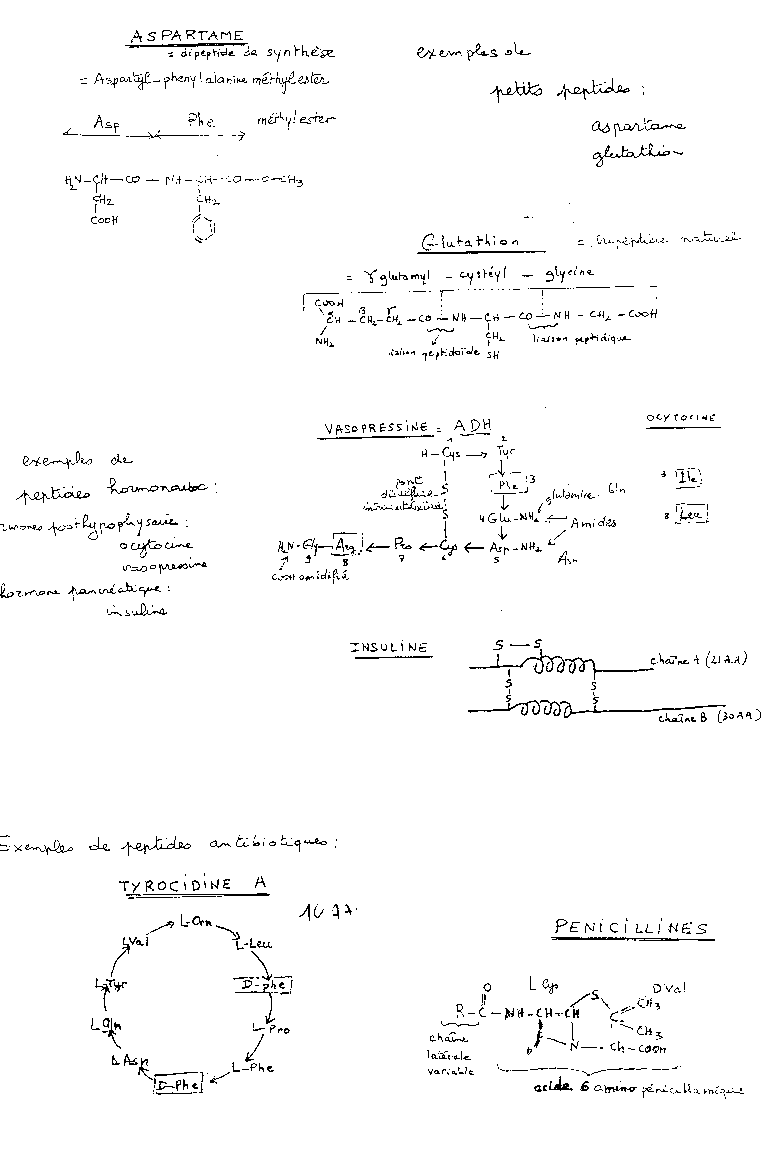 ASPARTAME
= dipeptide de synthèse
= Aspartyl-phenylalanine méthylester
Asp Phe méthylester
H₂N-CH-CO-NH-CH-CO-O-CH₃
CH₂ CH₂
COOH
exemples de
petits peptides :
aspartame
glutathion
Glutathion = tripeptide naturel
= γ glutamyl - cystéyl - glycine
COOH
CH-CH₂-CH₂-CO-NH-CH-CO-NH-CH₂-COOH
NH₂ CH₂
SH
liaison peptidoïde liaison peptidique
exemples de
peptides hormonaux :
hypophysaire :
ocytocine
vasopressine
hormone pancréatique :
insuline
VASOPRESSINE = ADH
OCYTOCINE
1 2
H-Cys → Tyr
pont disulfure
S
S
Phe 3
3 Ile
glutamine Gln
4 Glu-NH₂
8 Leu
Amides
H₂N-Gly-Arg ← Pro ← Cys ← Asp-NH₂
9 8 7 6 5
Asn
COOH amidifié
INSULINE
S-S
chaîne A (21AA)
S S
S S
chaîne B (30AA)
Exemples de peptides antibiotiques :
TYROCIDINE A
10 AA
L-Orn
L-Leu
D-phe
L-Pro
L-Phe
D-Phe
L Asp
L Gln
L-Tyr
L Val
PENICILLINES
L Cys D Val
O S CH₃
R-C-NH-CH-CH C
CH₃
N-CH-COOH
chaîne
latérale
variable
acide 6 amino pénicillamique